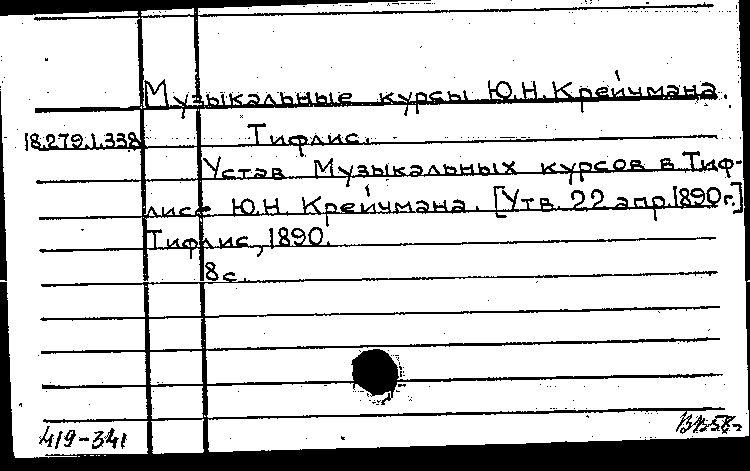 Музыкальные курсы Ю.Н. Крейчмана.
18.279.1.338 Тифлис.
Устав Музыкальных курсов в Тиф-
лисе Ю.Н. Крейчмана. [Утв. 22 апр. 1890 г.]
Тифлис, 1890.
8 с.
419-341